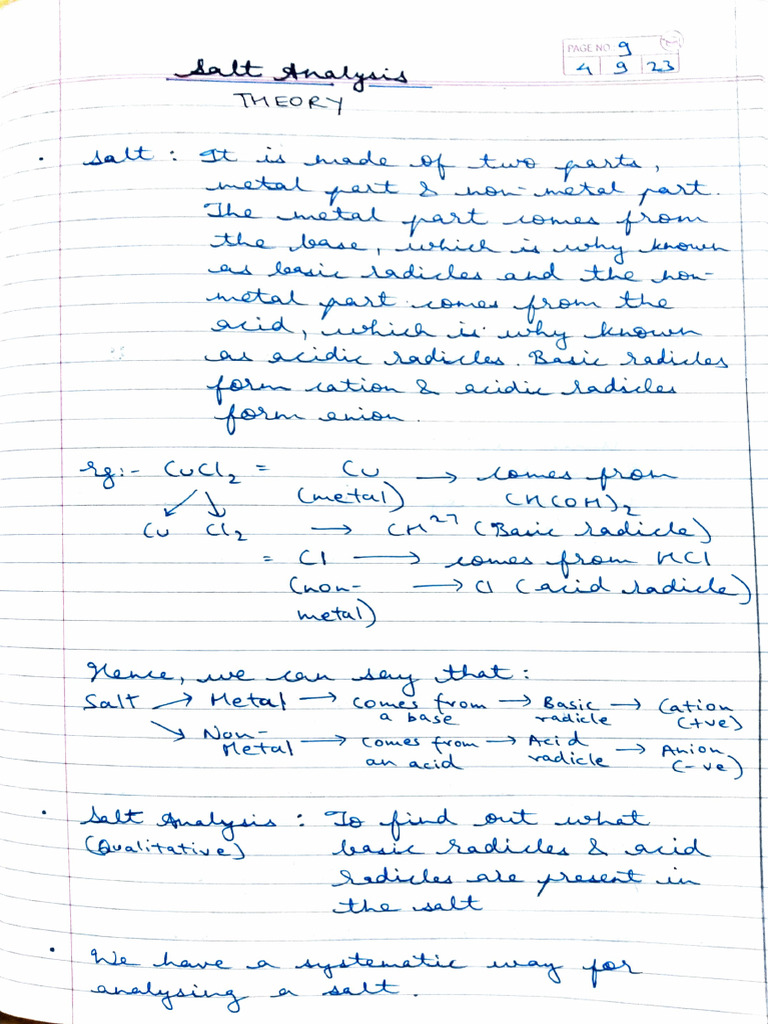 PAGE NO. 9
4 9 23
Salt Analysis
THEORY
• Salt : It is made of two parts,
metal part & non-metal part.
The metal part comes from
the base, which is why known
as basic radicles and the non-
metal part comes from the
acid, which is why known
as acidic radicles. Basic radicles
form cation & acidic radicles
form anion.
eg:- CuCl2 = Cu → comes from
(metal) CH(OH)2
Cu Cl2 → CH2+ (Basic radicle)
= Cl → comes from HCl
(non- → Cl (acid radicle)
metal)
Hence, we can say that :
Salt → Metal → comes from → Basic → Cation
a base radicle (+ve)
→ Non- → comes from → Acid → Anion
Metal an acid radicle (-ve)
• Salt Analysis : To find out what
(Qualitative) basic radicles & acid
radicles are present in
the salt
• We have a systematic way for
analysing a salt.